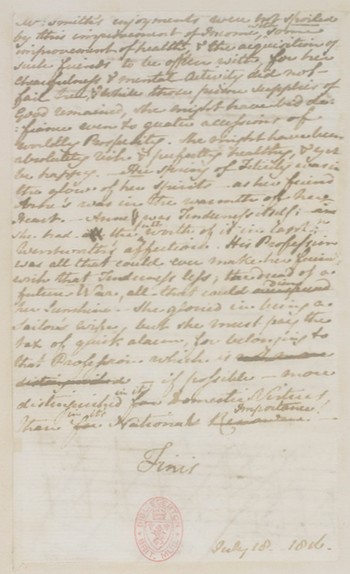 Mrs Smith's enjoyments were not spoiled
by this improvement of Income, some
improvement of health, & the acquisition of
such friends to be often with, for her
chearfulness & mental Activity did not
fail her, & while those prime supplies of
Good remained, she might have bid de-
fiance even to greater accessions of
worldly Prosperity. She might have been
absolutely rich & perfectly healthy, & yet
be happy. — Her spring of Felicity was in
the glow of her Spirits — as her friend
Anne's was in the warmth of her
Heart. — Anne was Tenderness itself; —
she had the full worth of it in Capt.
Wentworth's affection. His Profession
was all that could ever make her friends
wish that Tenderness less; the dread of a
future War, all that could dim
her Sunshine. — She gloried in being a
Sailor's wife, but she must pay the
tax of quick alarm, for belonging to
that Profession which is
— if possible — more
distinguished in it's Domestic Virtues,
than in it's National Importance
Finis
July 18. 1816.